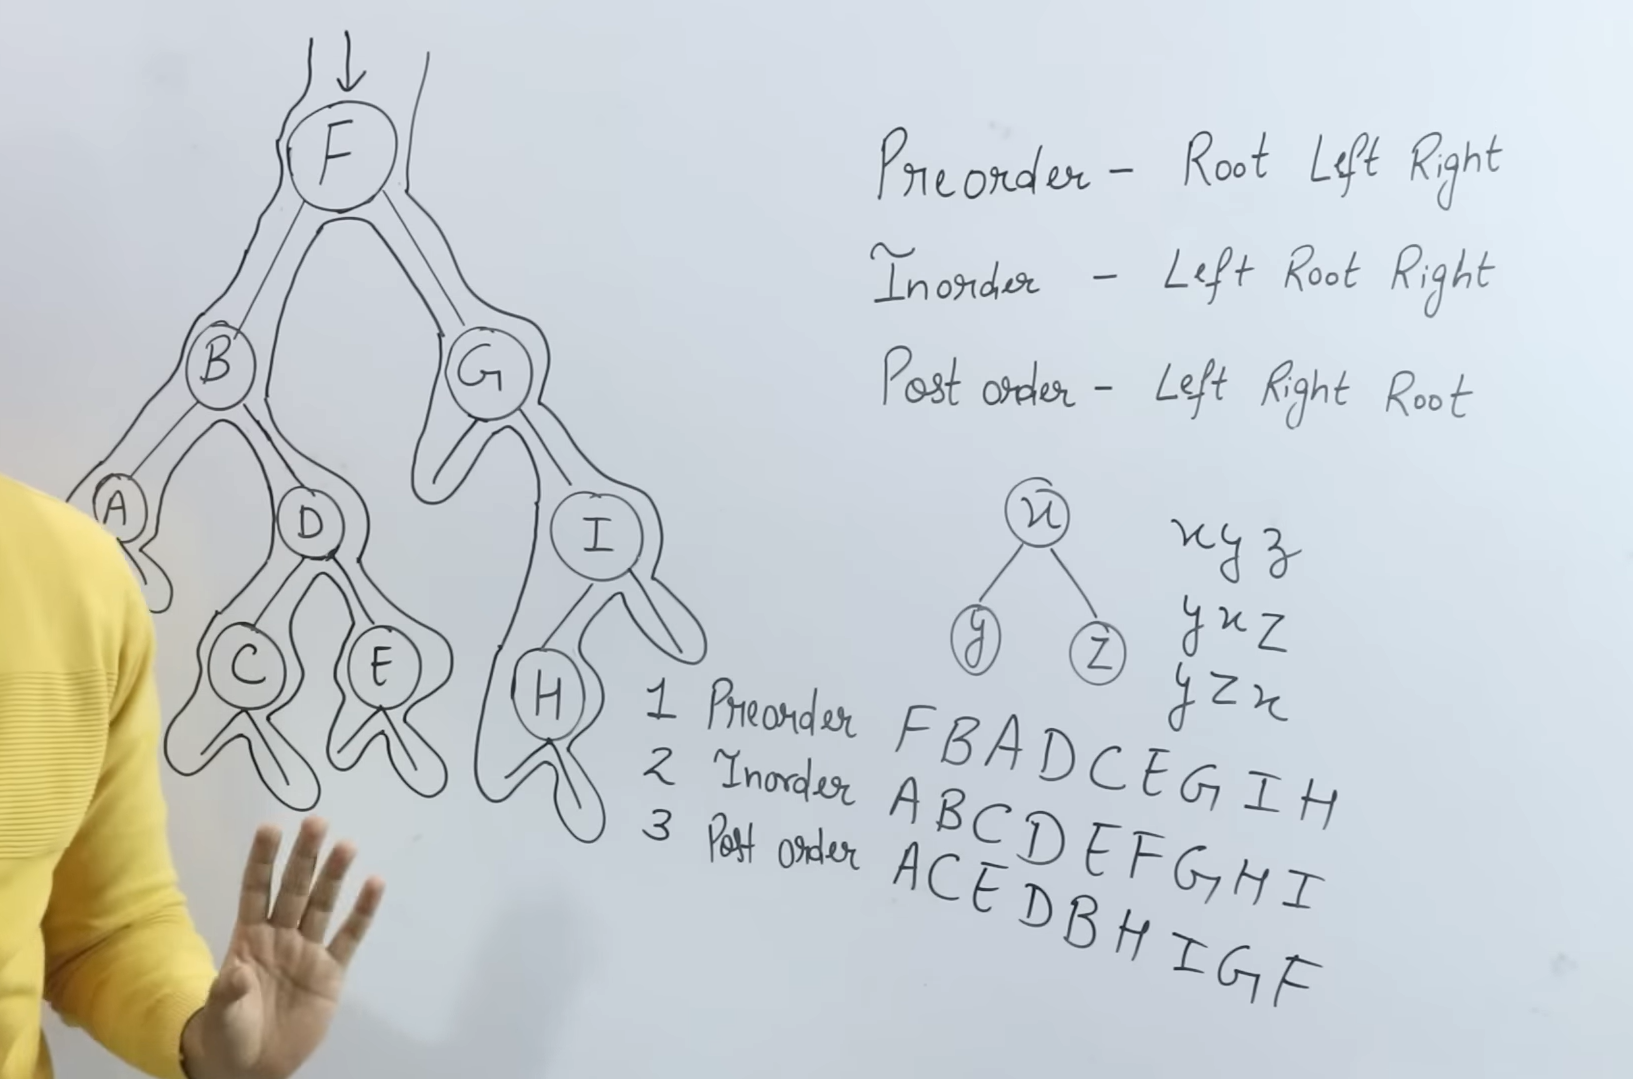 F
B
G
A
D
I
C
E
H
Preorder - Root Left Right
Inorder - Left Root Right
Post order - Left Right Root
x
y
z
xyz
yxz
yzx
1 Preorder FBADCEGIH
2 Inorder ABCDEFGHI
3 Post order ACEDBHIGF